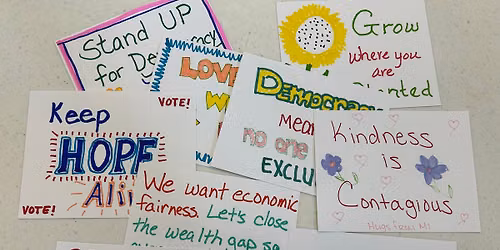 Stand UP
for
Grow
where you
are
Planted
LOVE
Democracy
no one
EXCLU
Keep
VOTE!
HOPE
VOTE!
We want economic
fairness. Let's close
the wealth gap so
Kindness
is
Contagious
Hugs from MI